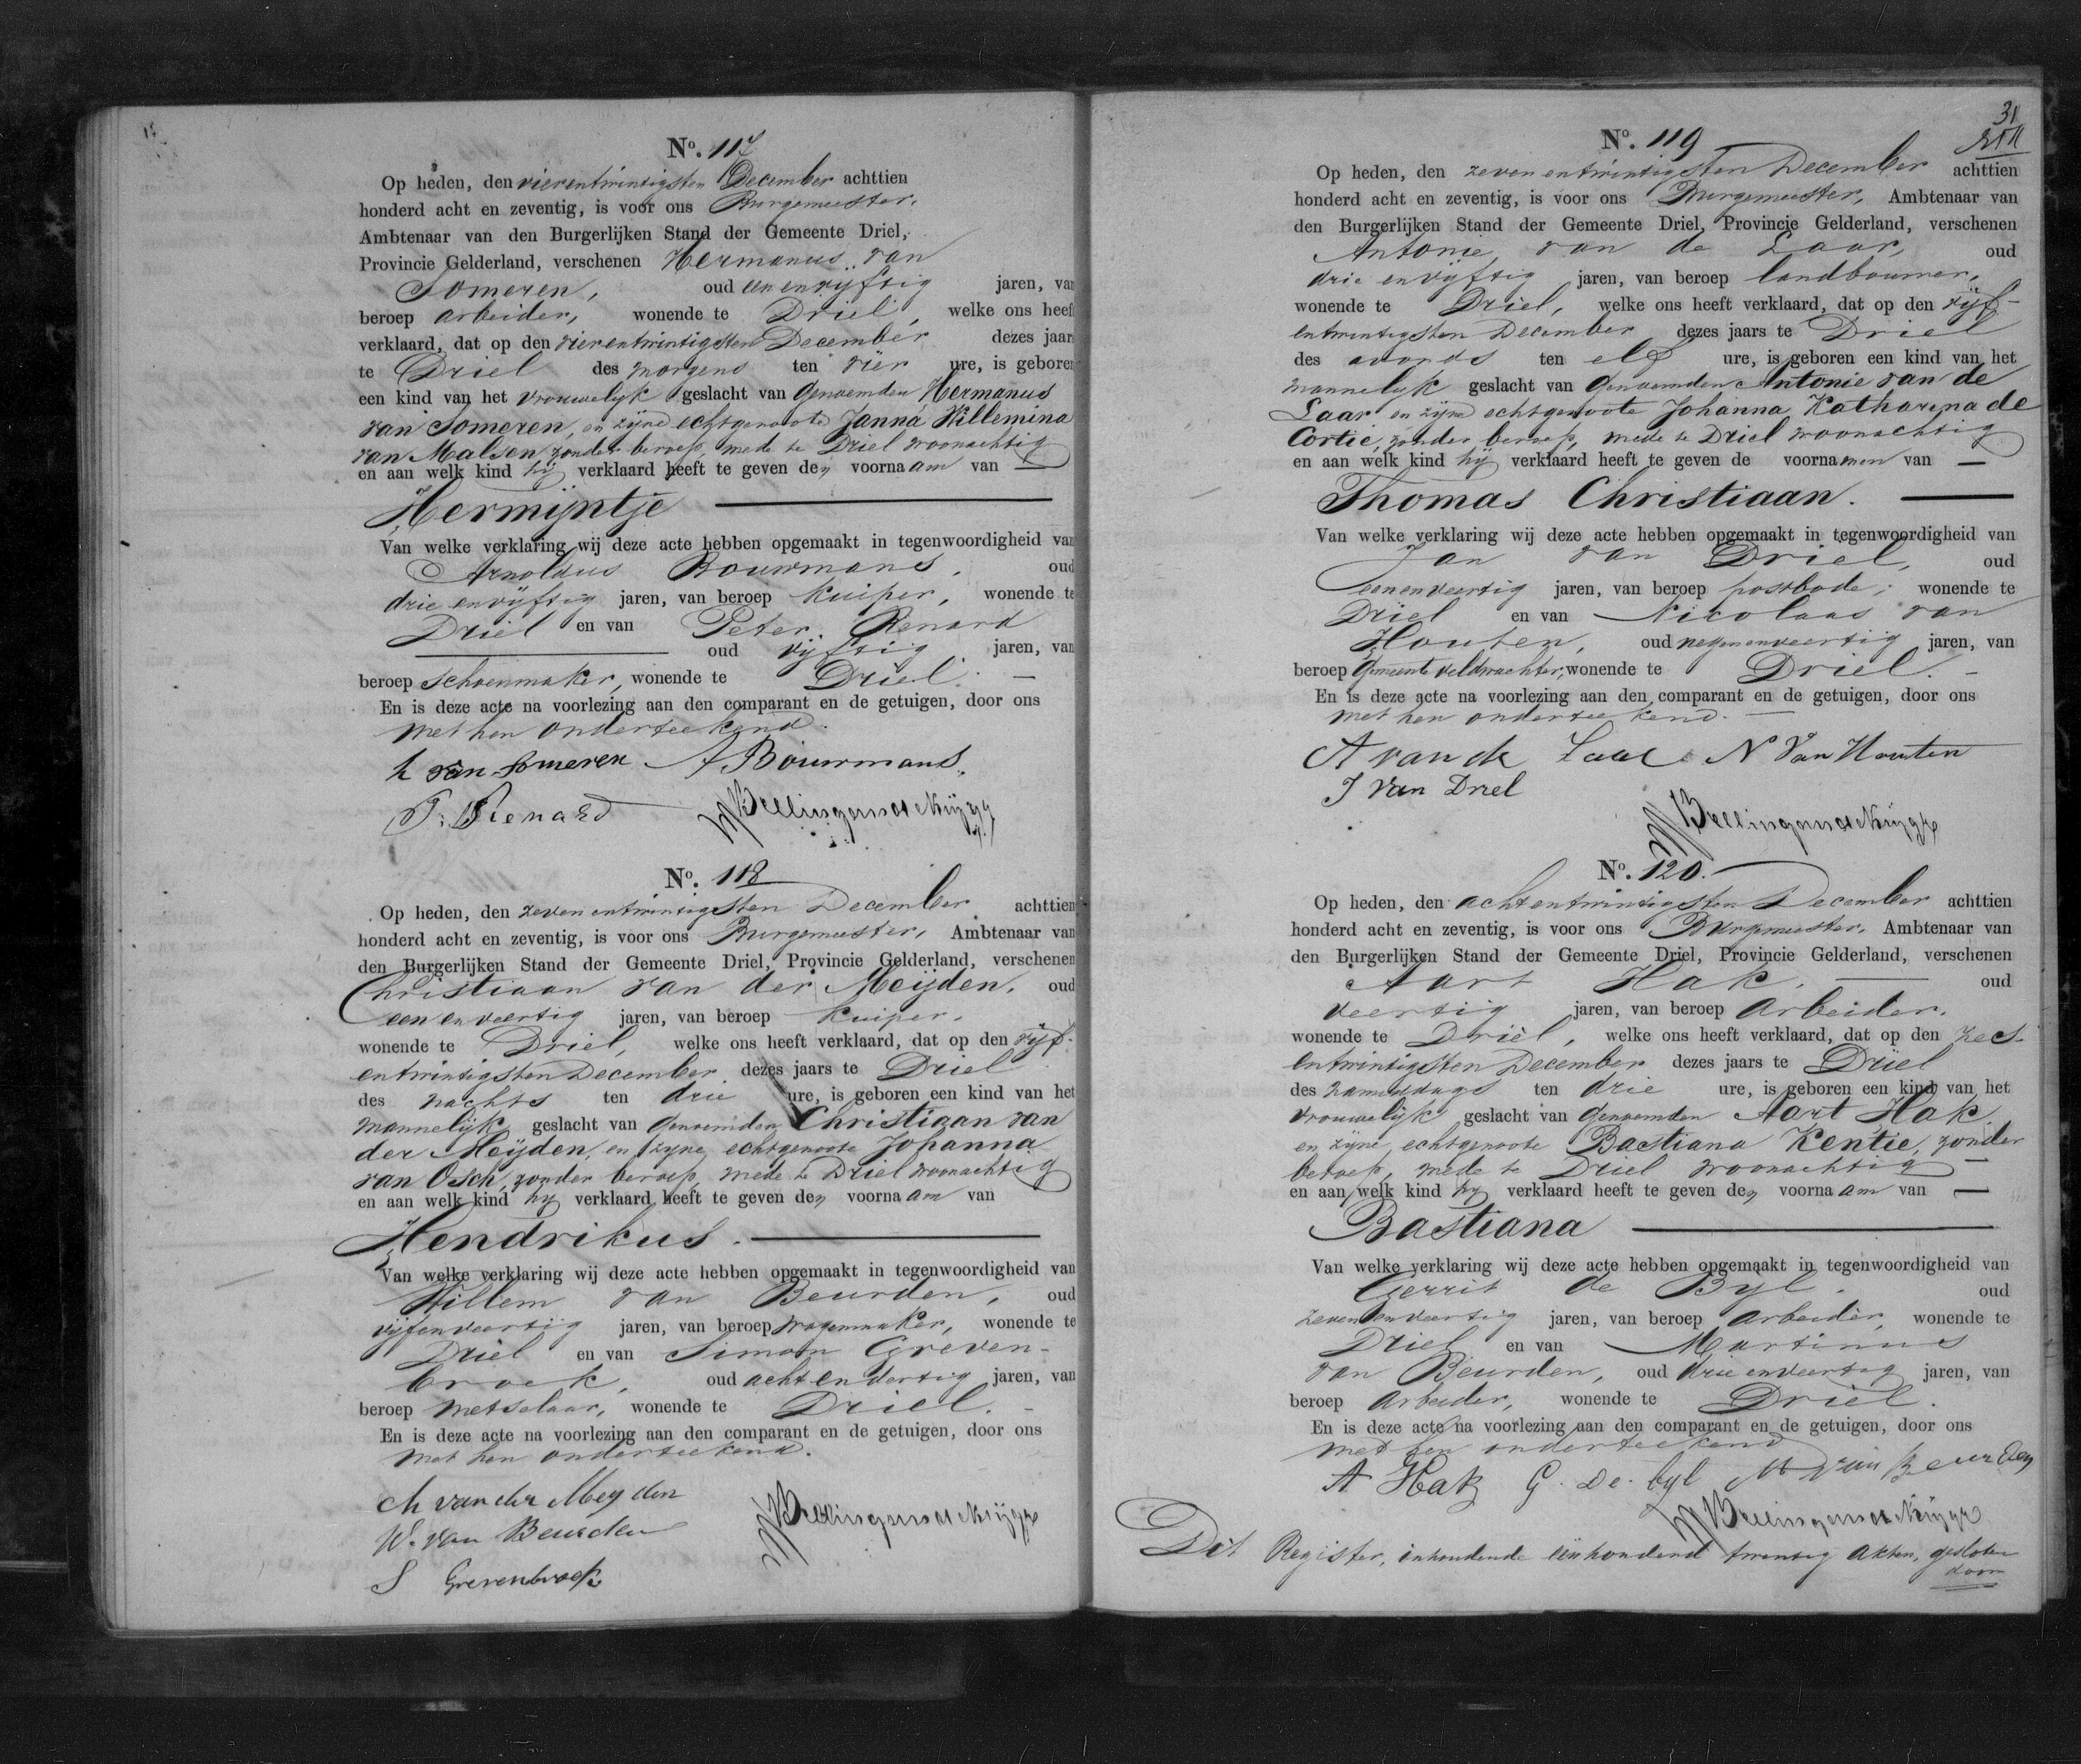 No. 117
Op heden, den vierentwintigsten December achttien
honderd acht en zeventig, is voor ons Burgemeester,
Ambtenaar van den Burgerlijken Stand der Gemeente Driel,
Provincie Gelderland, verschenen Hermanus van
Someren, oud een en vijftig jaren, van
beroep arbeider, wonende te Driel, welke ons heeft
verklaard, dat op den vierentwintigsten December dezes jaars
te Driel des morgens ten vier ure, is geboren
een kind van het vrouwelijk geslacht van genoemden Hermanus
van Someren, en zijne echtgenoote Janna Willemina
van Malsen, zonder beroep, mede te Driel woonachtig
en aan welk kind hij verklaard heeft te geven den voornaam van —
Hermijntje
Van welke verklaring wij deze acte hebben opgemaakt in tegenwoordigheid van
Arnoldus Bouwmans, oud
drie en vijftig jaren, van beroep kuiper, wonende te
Driel en van Peter Renard
oud vijftig jaren, van
beroep schoenmaker, wonende te Driel. —
En is deze acte na voorlezing aan den comparant en de getuigen, door ons
met hen onderteekend.
h van Someren A Bouwmans
P. Renard
No. 118
Op heden, den zevenentwintigsten December achttien
honderd acht en zeventig, is voor ons Burgemeester, Ambtenaar van
den Burgerlijken Stand der Gemeente Driel, Provincie Gelderland, verschenen
Christiaan van der Meijden, oud
een en veertig jaren, van beroep kuiper,
wonende te Driel, welke ons heeft verklaard, dat op den vijf-
entwintigsten December dezes jaars te Driel
des nachts ten drie ure, is geboren een kind van het
mannelijk geslacht van genoemden Christiaan van
der Meijden, en zijne echtgenoote Johanna
van Osch, zonder beroep, mede te Driel woonachtig
en aan welk kind hij verklaard heeft te geven den voornaam van
Hendrikus. —
Van welke verklaring wij deze acte hebben opgemaakt in tegenwoordigheid van
Willem van Beurden, oud
vijfenveertig jaren, van beroep wagenmaker, wonende te
Driel en van Simon Greven-
broek, oud achtendertig jaren, van
beroep metselaar, wonende te Driel. —
En is deze acte na voorlezing aan den comparant en de getuigen, door ons
met hen onderteekend.
Ch van der Meyden
W. van Beurden
S Grevenbroek
31
No. 119
Op heden, den zevenentwintigsten December achttien
honderd acht en zeventig, is voor ons Burgemeester, Ambtenaar van
den Burgerlijken Stand der Gemeente Driel, Provincie Gelderland, verschenen
Antonie van de Laar, oud
drie en vijftig jaren, van beroep landbouwer,
wonende te Driel, welke ons heeft verklaard, dat op den vijf-
entwintigsten December dezes jaars te Driel
des avonds ten elf ure, is geboren een kind van het
mannelijk geslacht van genoemden Antonie van de
Laar en zijne echtgenoote Johanna Katharina de
Cortie, zonder beroep, mede te Driel woonachtig
en aan welk kind hij verklaard heeft te geven de voornamen van —
Thomas Christiaan. —
Van welke verklaring wij deze acte hebben opgemaakt in tegenwoordigheid van
Jan van Driel, oud
eenenveertig jaren, van beroep postbode, wonende te
Driel en van Nicolaas van
Houten, oud negenenveertig jaren, van
beroep Gemeenteveldwachter, wonende te Driel. —
En is deze acte na voorlezing aan den comparant en de getuigen, door ons
met hen onderteekend. —
A van de Laar N Van Houten
J Van Driel
No. 120.
Op heden, den achtentwintigsten December achttien
honderd acht en zeventig, is voor ons Burgemeester, Ambtenaar van
den Burgerlijken Stand der Gemeente Driel, Provincie Gelderland, verschenen
Aart Hak, — oud
veertig jaren, van beroep Arbeider,
wonende te Driel, welke ons heeft verklaard, dat op den zes-
entwintigsten December dezes jaars te Driel
des namiddags ten drie ure, is geboren een kind van het
vrouwelijk geslacht van genoemden Aart Hak
en zijne echtgenoote Bastiana Kentie, zonder
beroep, mede te Driel woonachtig —
en aan welk kind hij verklaard heeft te geven den voornaam van —
Bastiana —
Van welke verklaring wij deze acte hebben opgemaakt in tegenwoordigheid van
Gerrit de Byl, oud
zevenenveertig jaren, van beroep Arbeider, wonende te
Driel en van Martinus
van Beurden, oud drieenveertig jaren, van
beroep Arbeider, wonende te Driel.
En is deze acte na voorlezing aan den comparant en de getuigen, door ons
met hen onderteekend
A Hak G. de byl M van Beurden
Dit Register, inhoudende eenhonderd twintig akten, gesloten
door